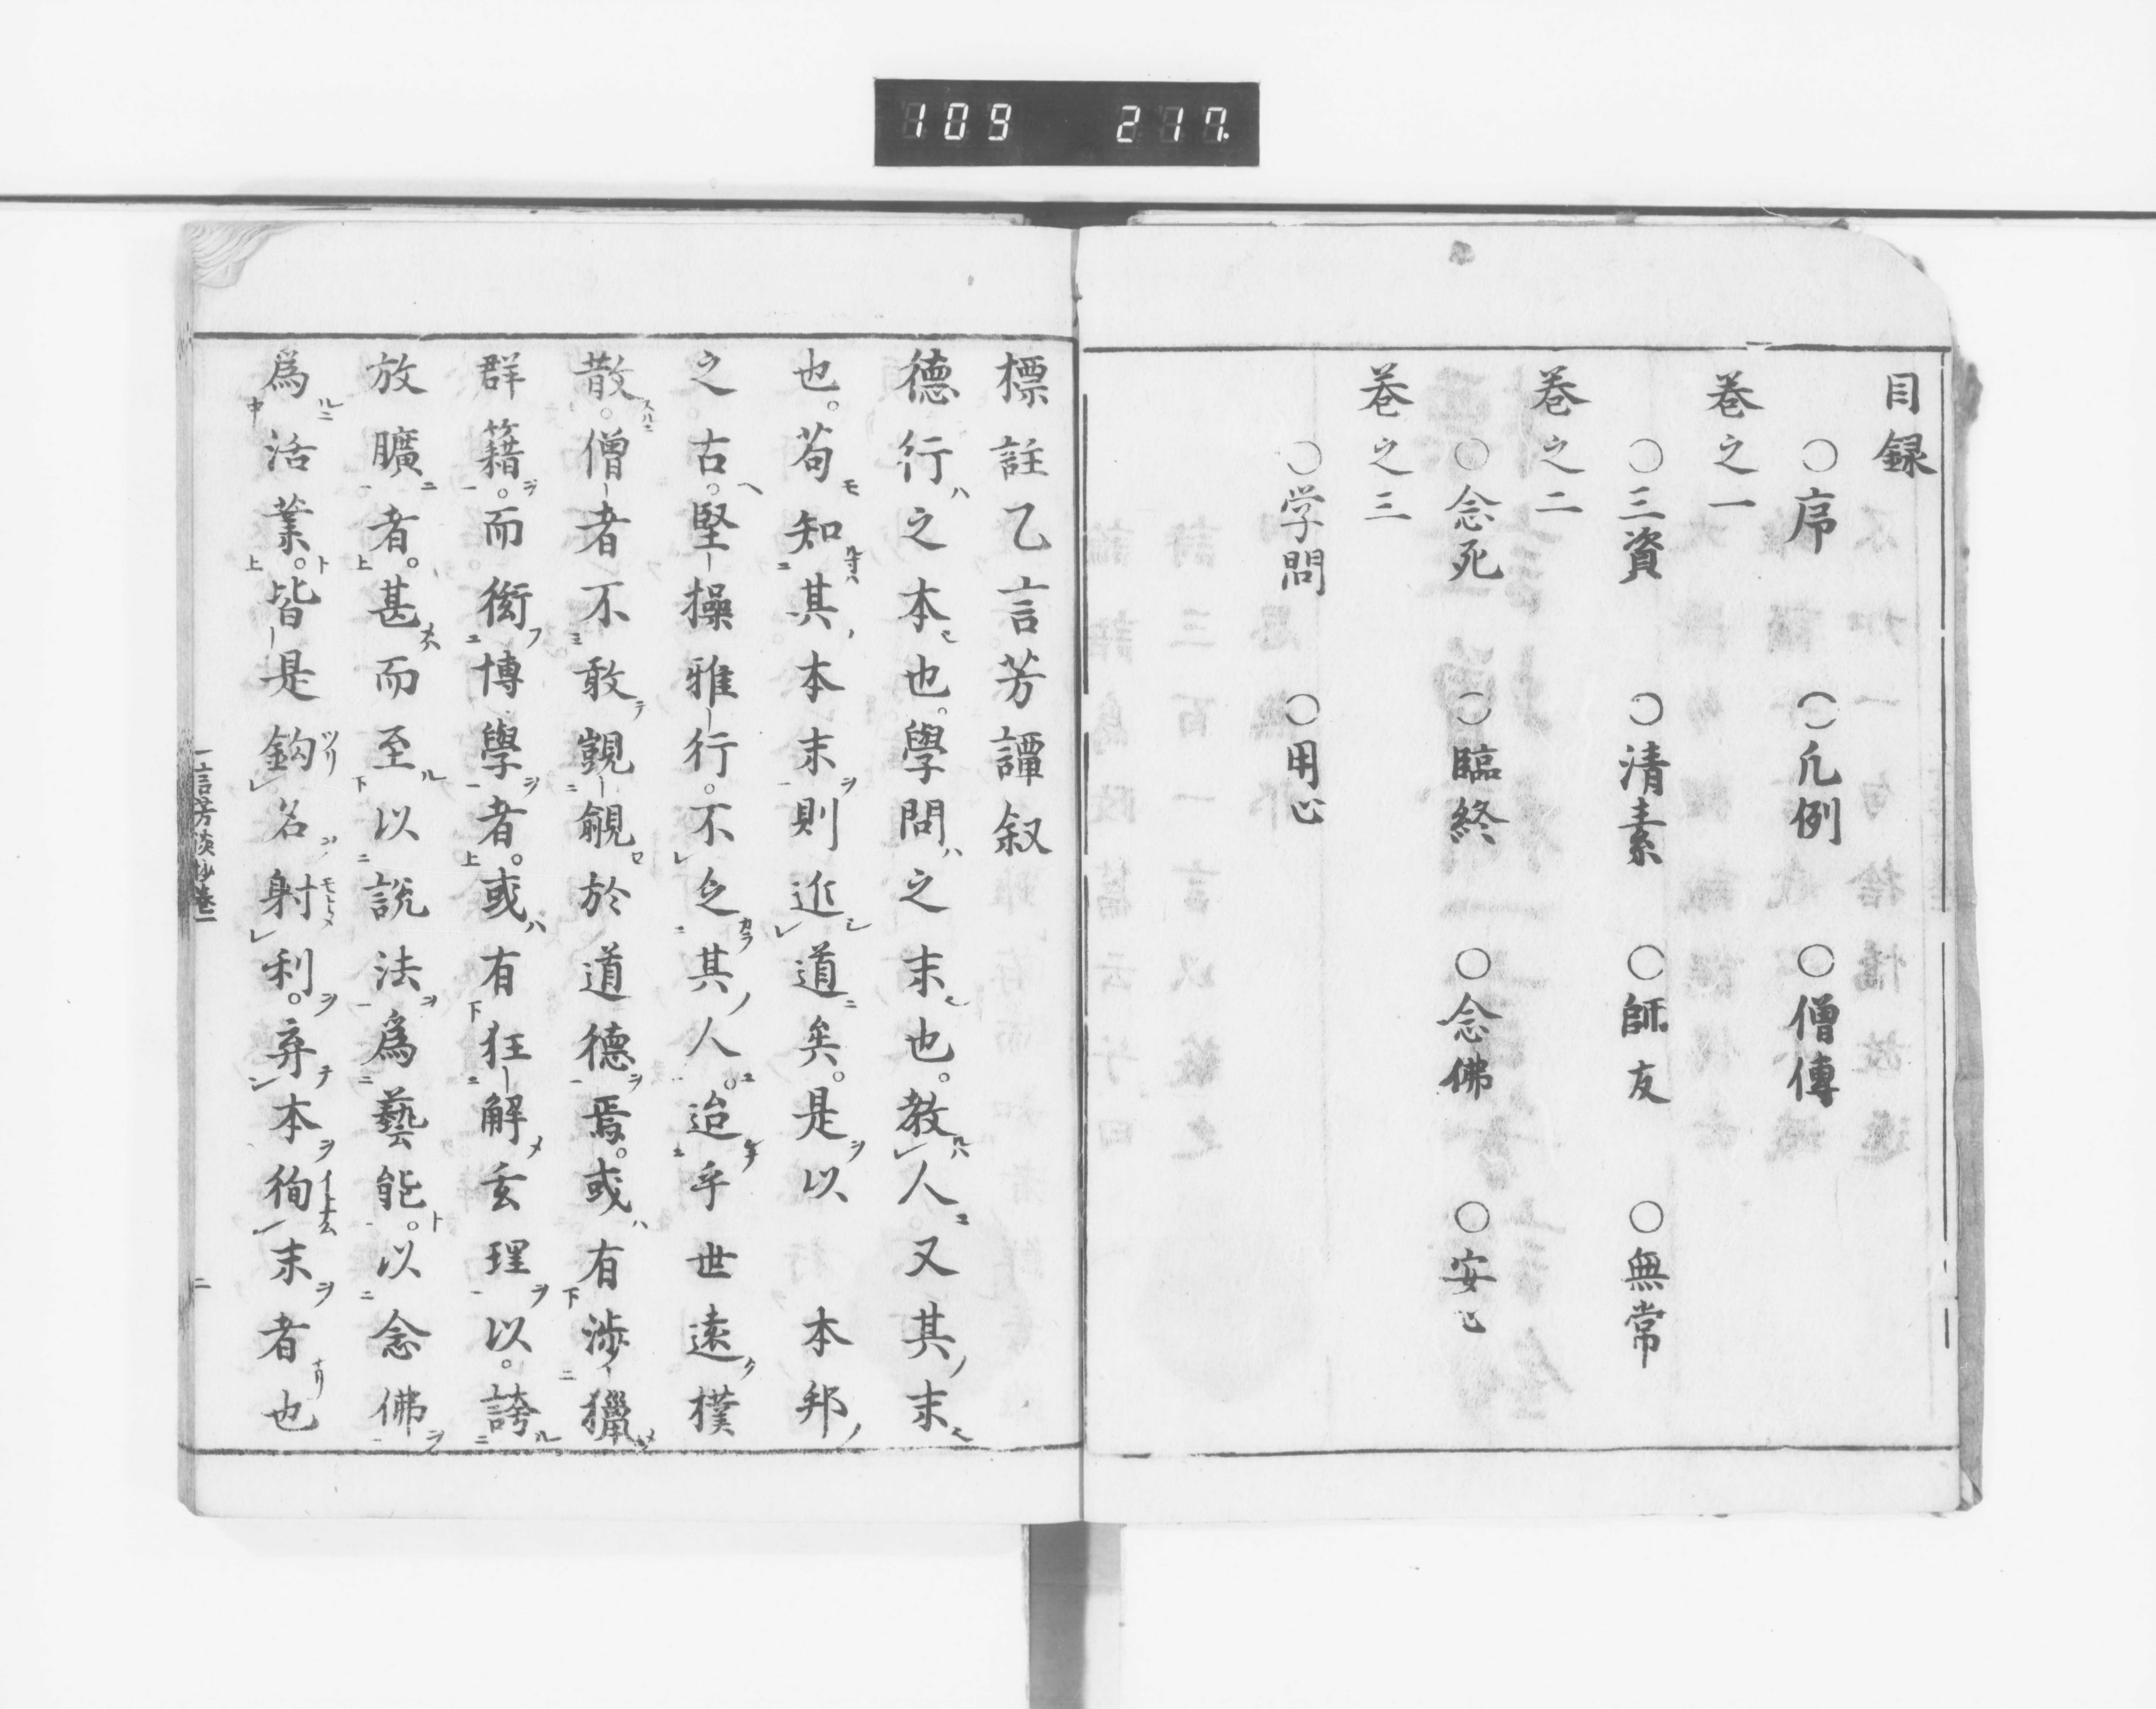 109 217.
目録
○序 ○凢例 ○僧傳
巻之一
○三資 ○清素 ○師友 ○無常
巻之二
○念死 ○臨終 ○念佛 ○安心
巻之三
○学問 ○用心
標註乙言芳譚叙
德行之本也。學問之末也。教人又其末
也。苟知其本末則近道矣。是以 本邦
之古。堅操雅行。不乏其人。迨乎世遠樸
散。僧者不敢覬覦於道德焉。或有渉獵
群籍。而衒博學者。或有狂解玄理以。誇
放曠者。甚而至以説法爲藝能。以念佛
爲活業。皆是鈎名射利。弃本徇末者也
一言芳談抄巻一 二